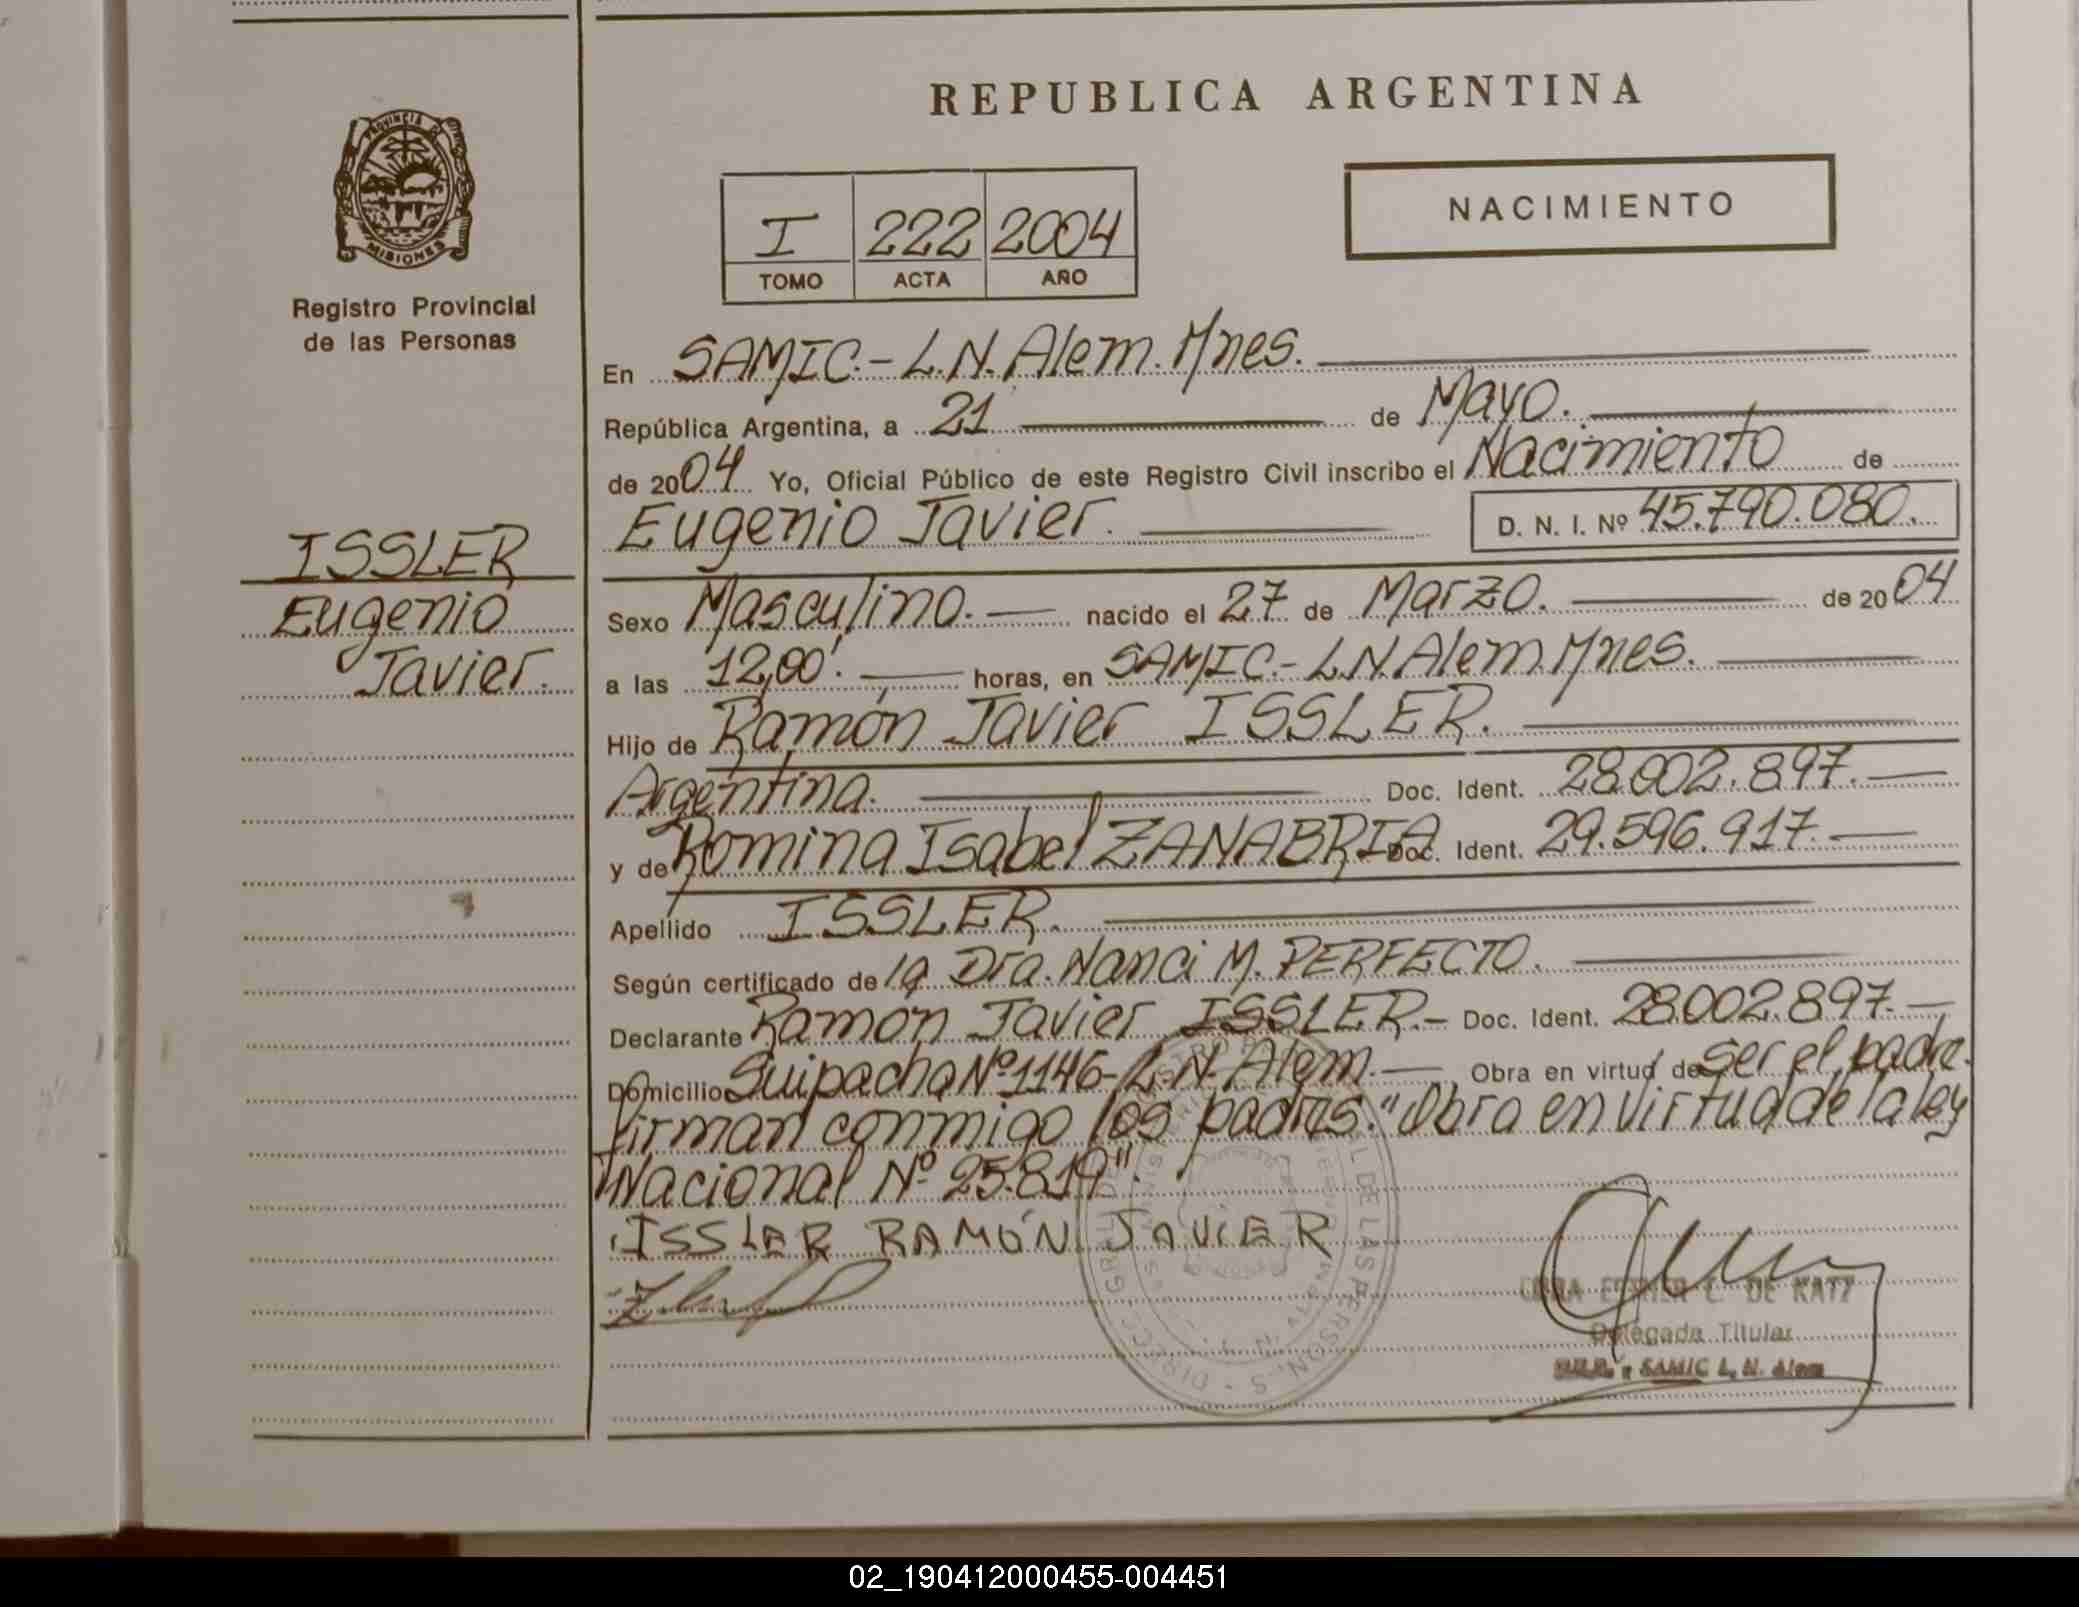 REPUBLICA ARGENTINA
PROVINCIA DE
MISIONES
Registro Provincial
de las Personas
I 222 2004
TOMO ACTA AÑO
NACIMIENTO
En SAMIC.- L.N. Alem. Mnes.
República Argentina, a 21 de Mayo.
de 2004 Yo, Oficial Público de este Registro Civil inscribo el Nacimiento de
Eugenio Javier. D. N. I. Nº 45.790.080.
ISSLER
Eugenio
Javier.
Sexo Masculino. nacido el 27 de Marzo. de 2004
a las 12,00'. horas, en SAMIC.- L.N. Alem. Mnes.
Hijo de Ramón Javier ISSLER.
Argentina. Doc. Ident. 28.002.897.
y de Romina Isabel ZANABRIA Doc. Ident. 29.596.917.
Apellido ISSLER.
Según certificado de la Dra. Nanci M. PERFECTO.
Declarante Ramón Javier ISSLER.- Doc. Ident. 28.002.897.
Domicilio Suipacha Nº 1146- L.N. Alem. Obra en virtud de ser el padre.
Firman conmigo los padres. "Obra en virtud de la ley
Nacional Nº 25.819".
ISSLER RAMÓN JAVIER
DE LAS PERSONAS
ESTHER C. DE KATZ
Delegada Titular
SAMIC L. N. Alem
02_190412000455-004451